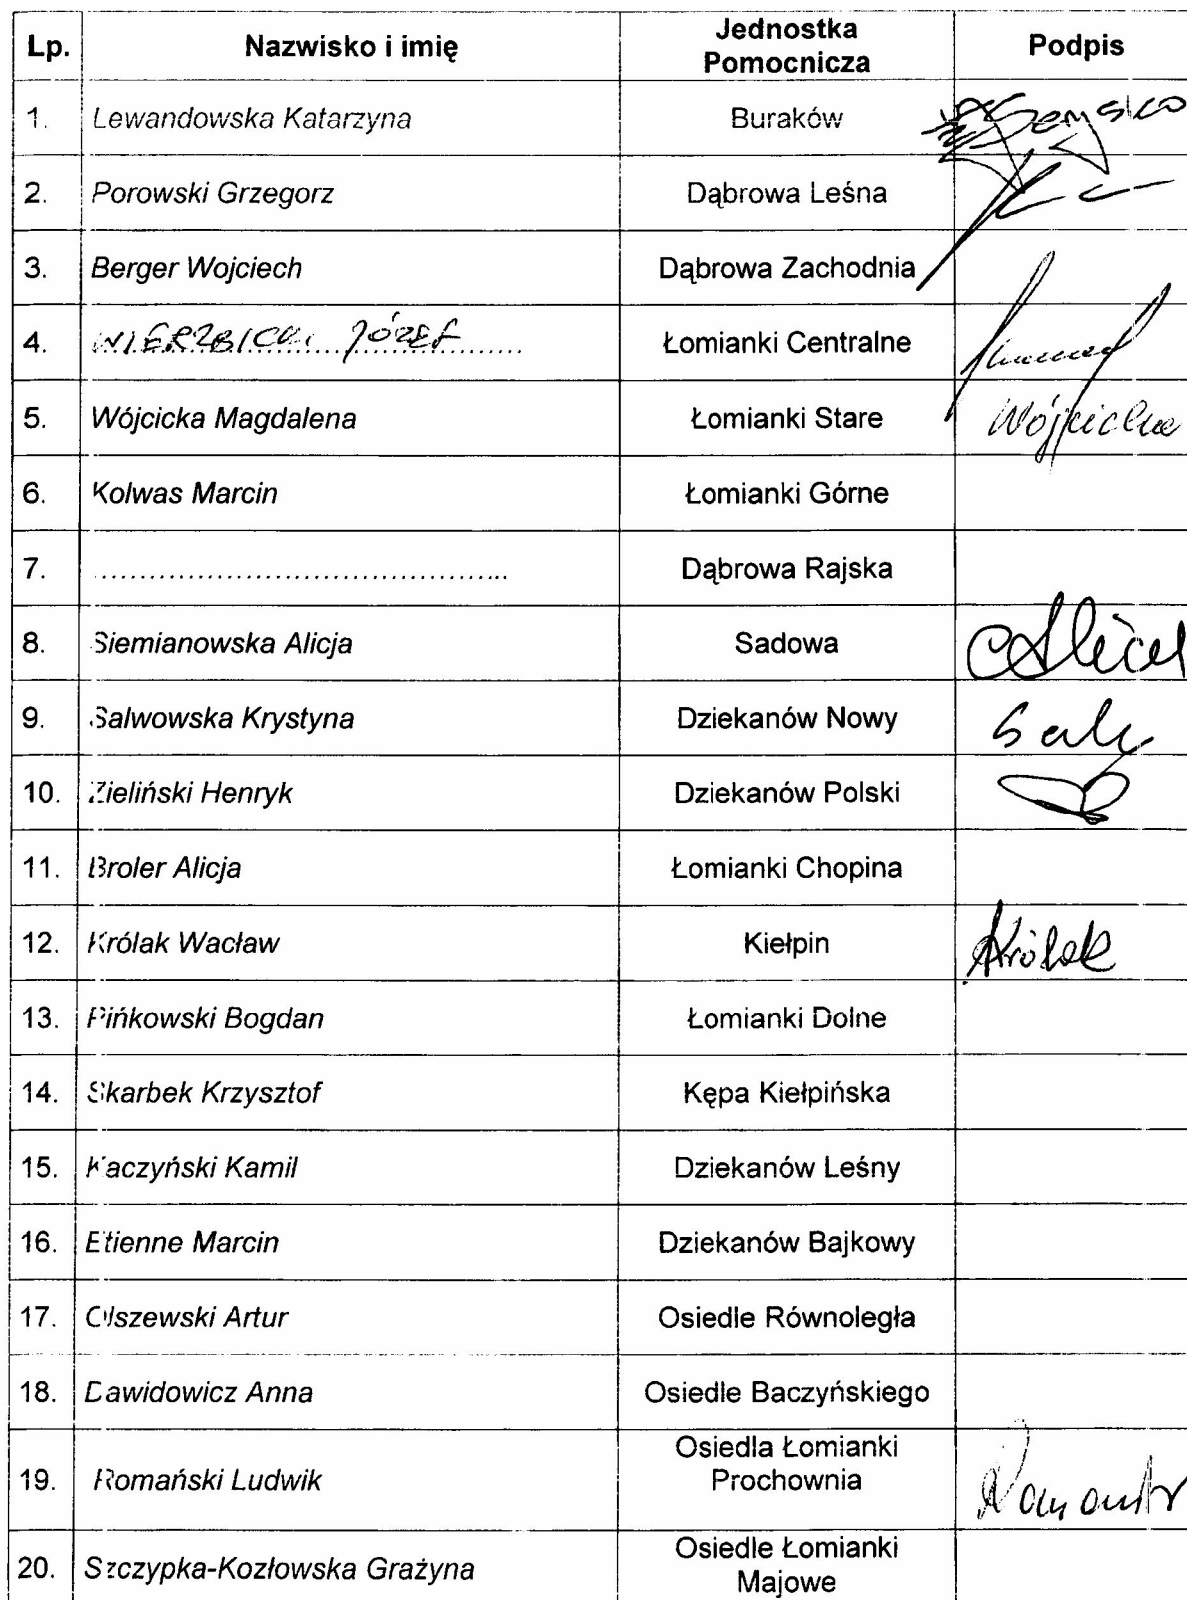 Lp. Nazwisko i imię Jednostka Pomocnicza Podpis
1. Lewandowska Katarzyna Buraków
2. Porowski Grzegorz Dąbrowa Leśna
3. Berger Wojciech Dąbrowa Zachodnia
4. WIERZBICKI JÓZEF Łomianki Centralne
5. Wójcicka Magdalena Łomianki Stare Wójcicka
6. Kolwas Marcin Łomianki Górne
7. .............................................. Dąbrowa Rajska
8. Siemianowska Alicja Sadowa
9. Salwowska Krystyna Dziekanów Nowy
10. Zieliński Henryk Dziekanów Polski
11. Broler Alicja Łomianki Chopina
12. Królak Wacław Kiełpin Królak
13. Pińkowski Bogdan Łomianki Dolne
14. Skarbek Krzysztof Kępa Kiełpińska
15. Kaczyński Kamil Dziekanów Leśny
16. Etienne Marcin Dziekanów Bajkowy
17. Olszewski Artur Osiedle Równoległa
18. Dawidowicz Anna Osiedle Baczyńskiego
19. Romański Ludwik Osiedla Łomianki Prochownia
20. Szczypka-Kozłowska Grażyna Osiedle Łomianki Majowe